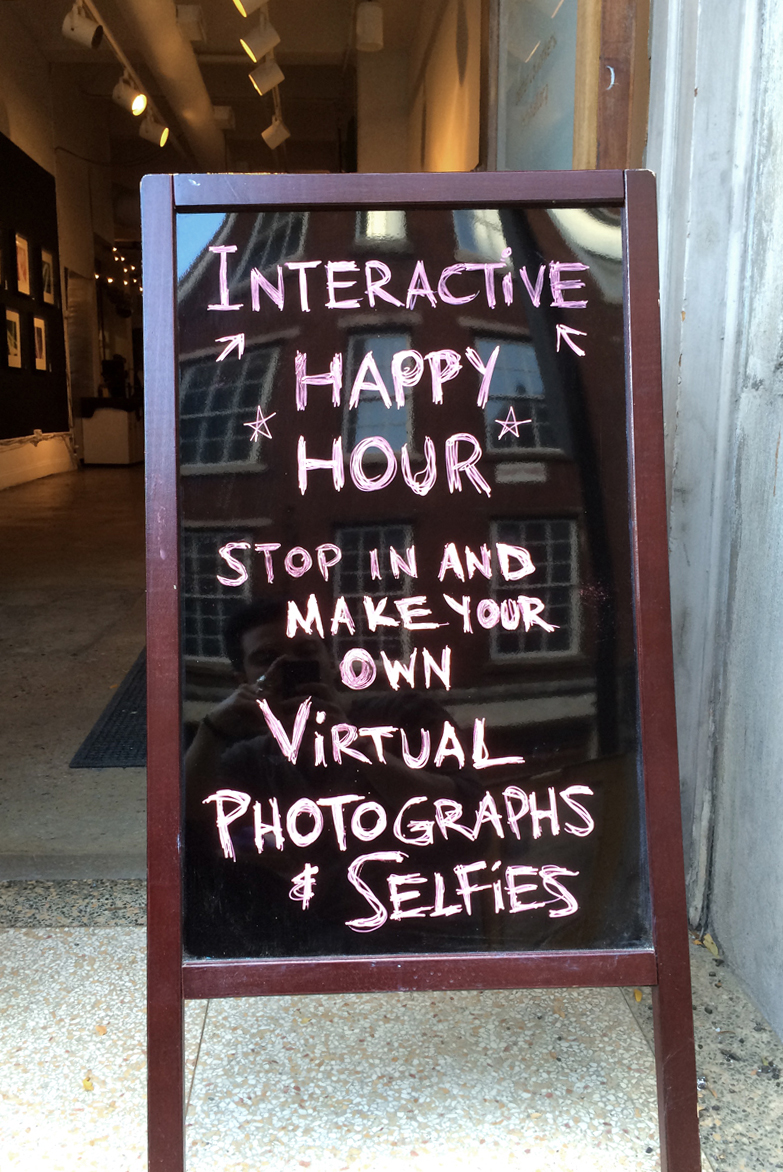 INTERACTiVE
HAPPY
HOUR
STOP IN AND
MAKE YOUR
OWN
ViRTUAL
PHOTOGRAPHS
& SELFiES